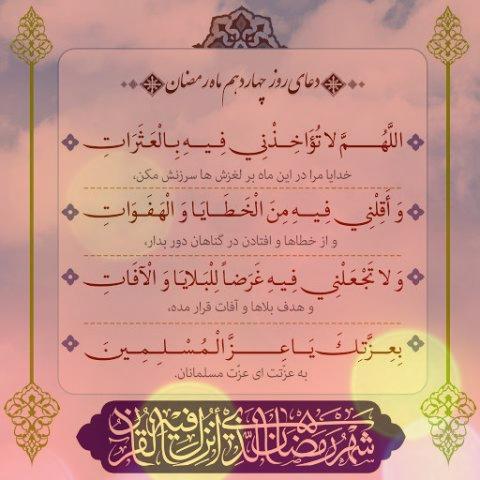 دعای روز چهاردهم ماه رمضان
اللَّهُمَّ لا تُؤَاخِذْنِي فِيهِ بِالْعَثَرَاتِ
خدایا مرا در این ماه بر لغزش ها سرزنش مکن،
وَ أَقِلْنِي فِيهِ مِنَ الْخَطَايَا وَ الْهَفَوَاتِ
و از خطاها و افتادن در گناهان دور بدار،
وَ لا تَجْعَلْنِي فِيهِ غَرَضاً لِلْبَلايَا وَ الْآفَاتِ
و هدف بلاها و آفات قرار مده،
بِعِزَّتِكَ يَا عِزَّ الْمُسْلِمِينَ
به عزّتت ای عزّت مسلمانان.
شهر رمضان الذي أنزل فيه القرآن